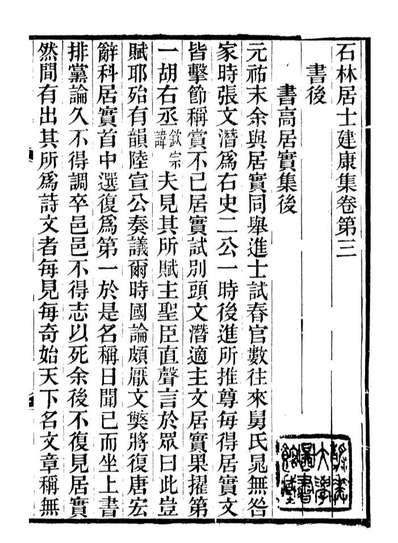 石林居士建康集卷第三
書後
書高居實集後
元祐末余與居實同舉進士試春官數往來舅氏晁無咎
家時張文潛爲右史二公一時後進所推尊每得居實文
皆擊節稱賞不已居實試別頭文潛適主文居實果擢第
一胡右丞欽宗諱夫見其所賦主聖臣直聲言於眾曰此豈
賦耶殆有韻陸宣公奏議爾時國論頗厭文獘將復唐宏
辭科居實首中選復爲第一於是名稱日聞已而坐上書
排黨論久不得調卒邑邑不得志以死余後不復見居實
然間有出其所爲詩文者每見每奇始天下名文章稱無